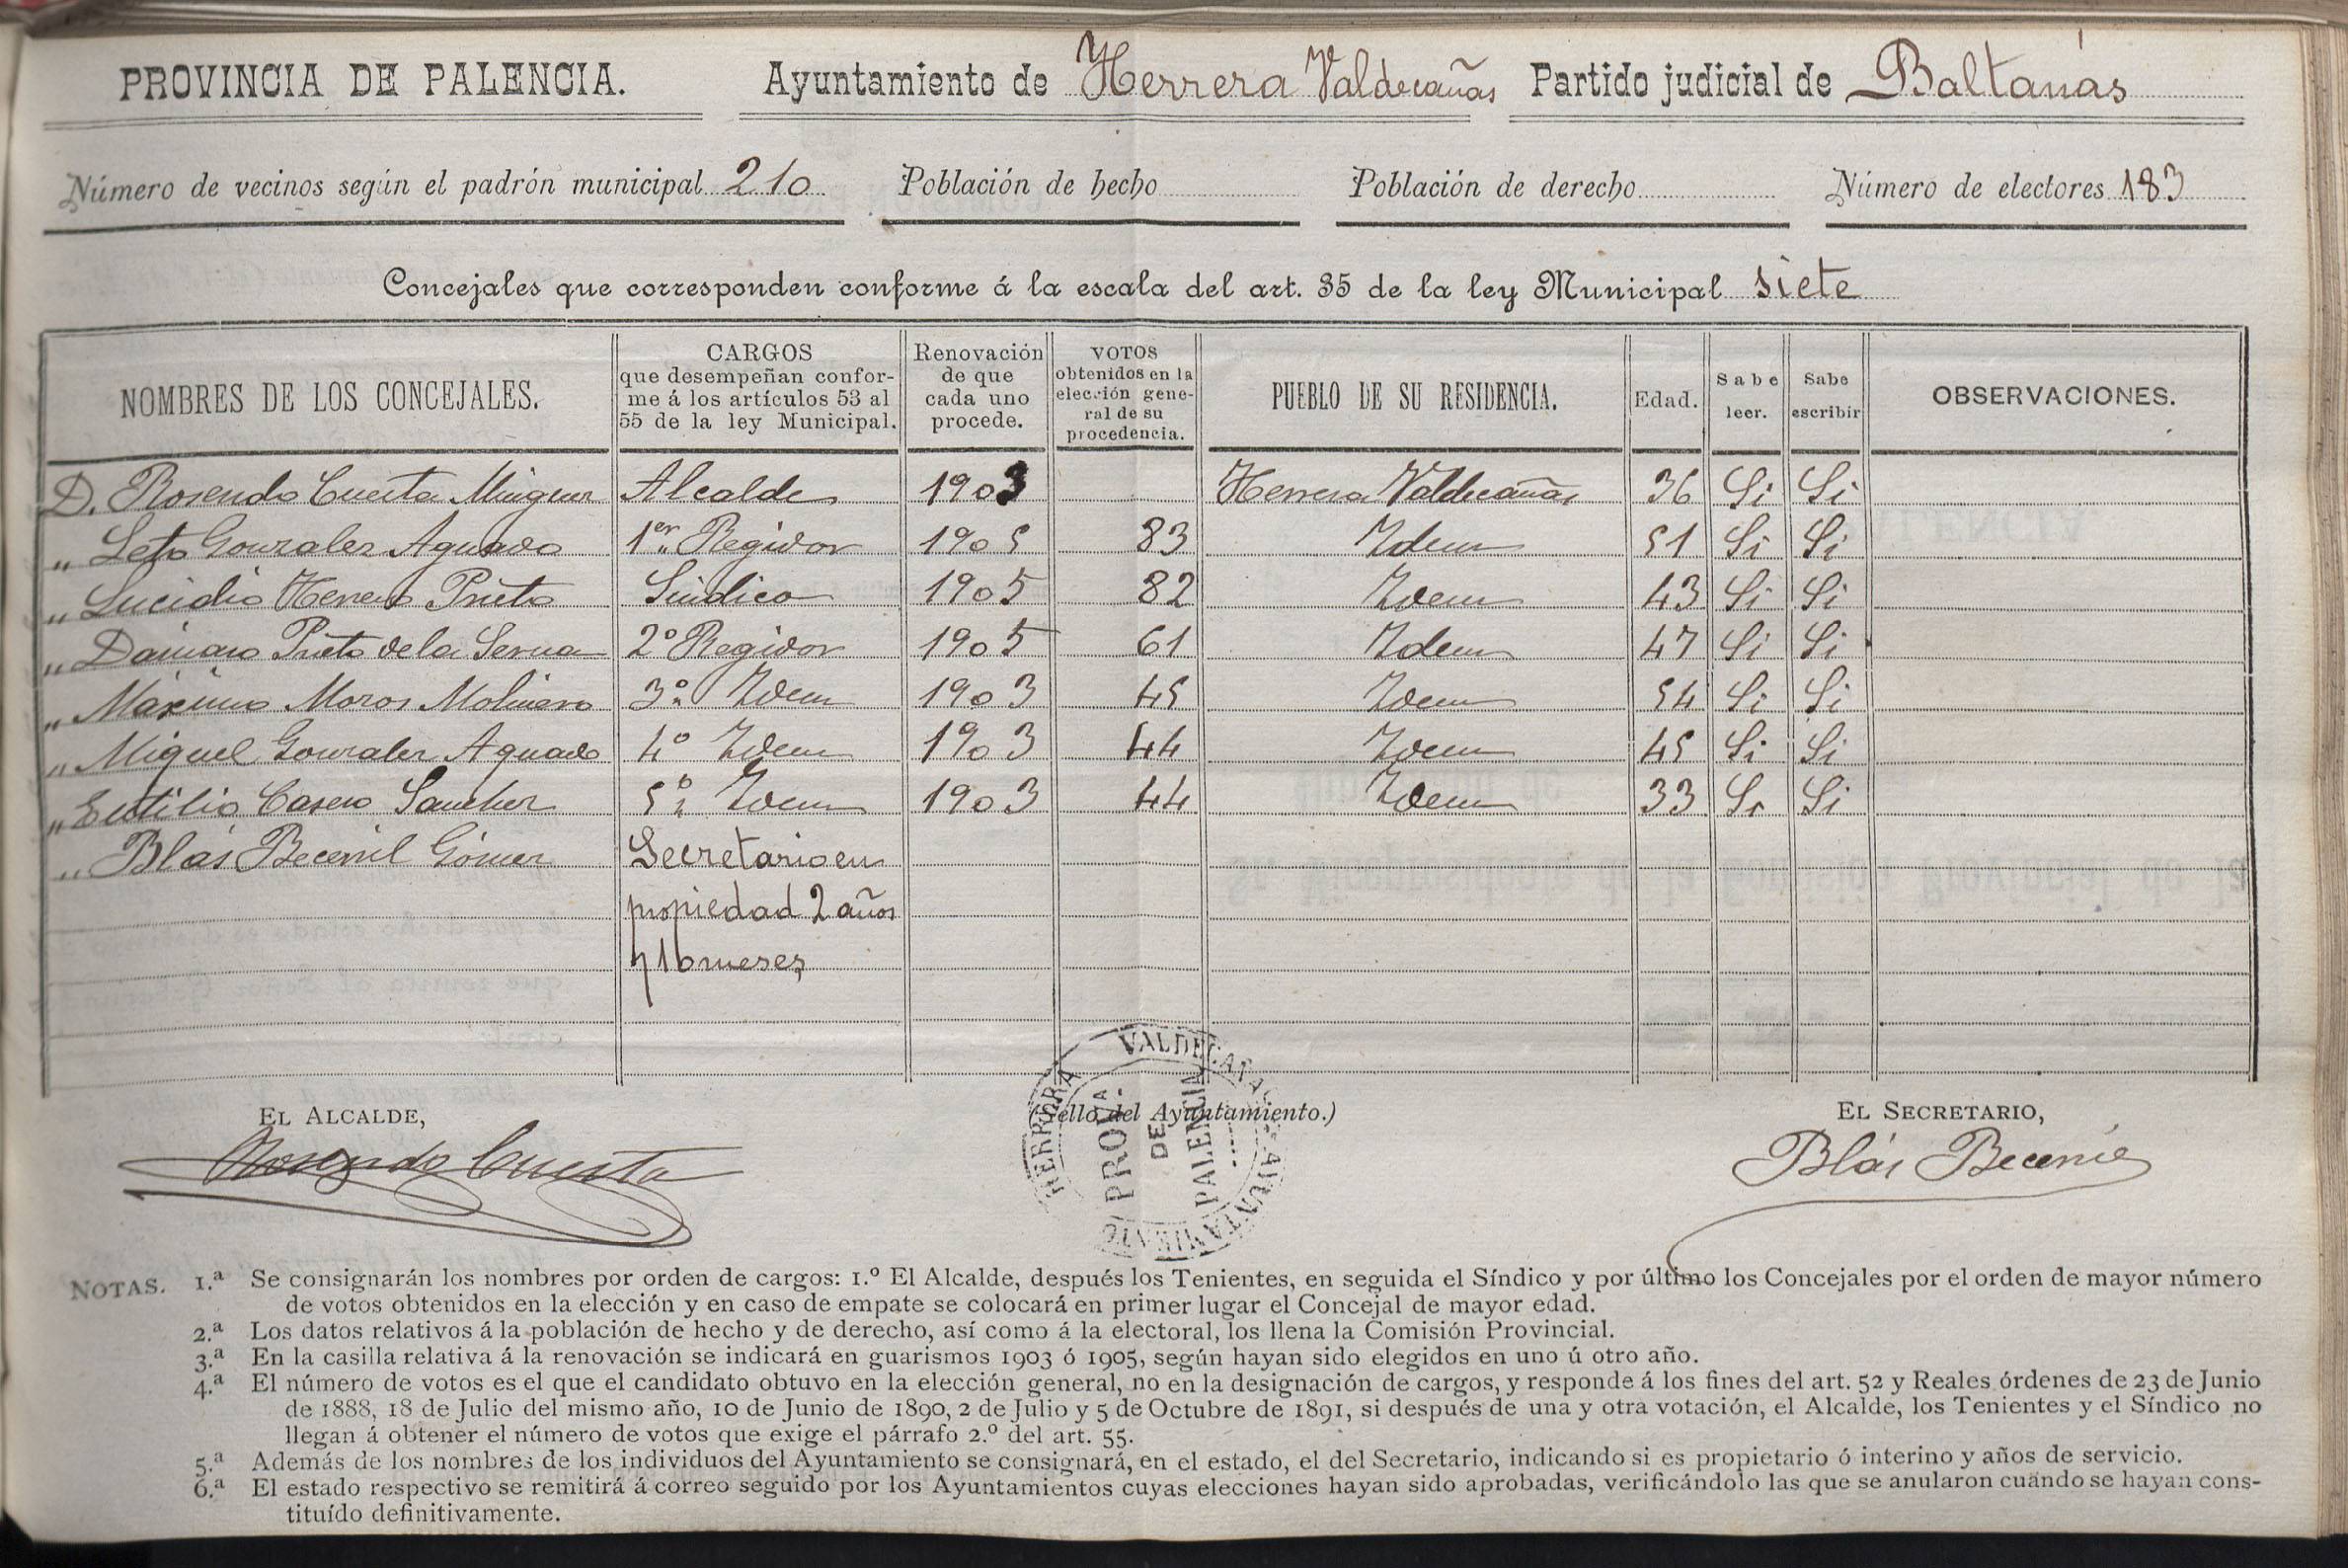 PROVINCIA DE PALENCIA. Ayuntamiento de Herrera Valdecañas Partido judicial de Baltanás
Número de vecinos según el padrón municipal 210 Población de hecho Población de derecho Número de electores 183
Concejales que corresponden conforme á la escala del art. 35 de la ley Municipal siete
NOMBRES DE LOS CONCEJALES.
CARGOS
que desempeñan confor-
me á los artículos 53 al
55 de la ley Municipal.
Renovación
de que
cada uno
procede.
VOTOS
obtenidos en la
elección gene-
ral de su
procedencia.
PUEBLO DE SU RESIDENCIA.
Edad.
Sabe
leer.
Sabe
escribir
OBSERVACIONES.
D. Rosendo Cuesta Minguez Alcalde 1903 Herrera Valdecañas 36 Si Si
„ Leto Gonzalez Aguado 1er. Regidor 1905 83 Idem 51 Si Si
„ Lucidio Herrero Prieto Sindico 1905 82 Idem 43 Si Si
„ Dámaso Prieto de la Serna 2º Regidor 1905 61 Idem 47 Si Si
„ Máximo Moros Molinero 3º Idem 1903 45 Idem 54 Si Si
„ Miguel Gonzalez Aguado 4º Idem 1903 44 Idem 45 Si Si
„ Eutilio Casero Sanchez 5º Idem 1903 44 Idem 33 Si Si
„ Blás Becerril Gómez Secretario en
propiedad 2 años
y 10 meses
EL ALCALDE, (Sello del Ayuntamiento.) EL SECRETARIO,
Rosendo Cuesta
HERRERA VALDECAÑAS AYUNTAMIENTO
PROVA.
DE
PALENCIA
Blás Becerril
NOTAS. 1.ª Se consignarán los nombres por orden de cargos: 1.º El Alcalde, después los Tenientes, en seguida el Síndico y por último los Concejales por el orden de mayor número
de votos obtenidos en la elección y en caso de empate se colocará en primer lugar el Concejal de mayor edad.
2.ª Los datos relativos á la población de hecho y de derecho, así como á la electoral, los llena la Comisión Provincial.
3.ª En la casilla relativa á la renovación se indicará en guarismos 1903 ó 1905, según hayan sido elegidos en uno ú otro año.
4.ª El número de votos es el que el candidato obtuvo en la elección general, no en la designación de cargos, y responde á los fines del art. 52 y Reales órdenes de 23 de Junio
de 1888, 18 de Julio del mismo año, 10 de Junio de 1890, 2 de Julio y 5 de Octubre de 1891, si después de una y otra votación, el Alcalde, los Tenientes y el Síndico no
llegan á obtener el número de votos que exige el párrafo 2.º del art. 55.
5.ª Además de los nombres de los individuos del Ayuntamiento se consignará, en el estado, el del Secretario, indicando si es propietario ó interino y años de servicio.
6.ª El estado respectivo se remitirá á correo seguido por los Ayuntamientos cuyas elecciones hayan sido aprobadas, verificándolo las que se anularon cuando se hayan cons-
tituído definitivamente.